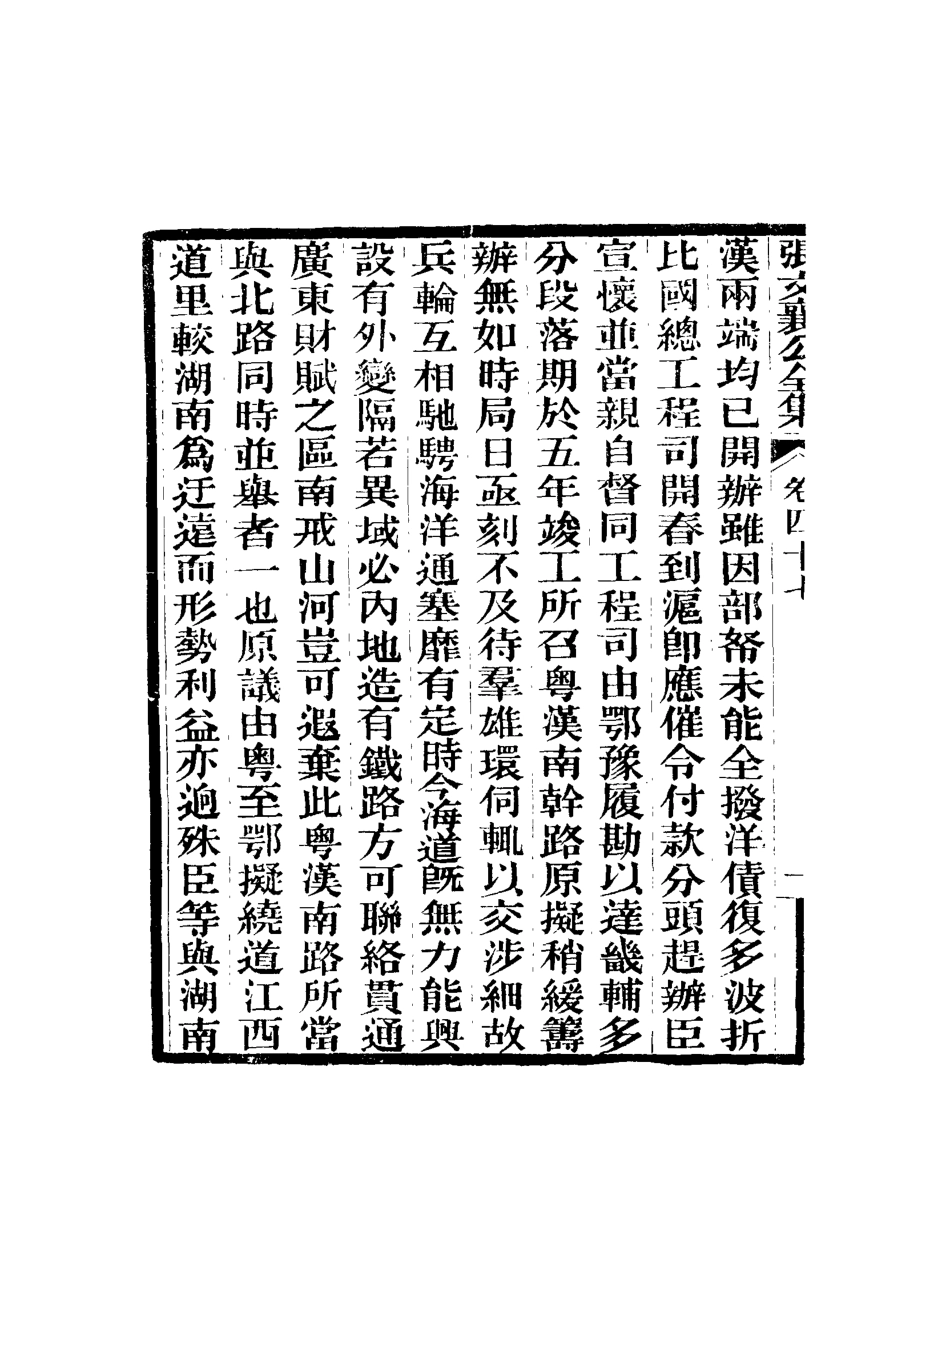 張文襄公全集 卷四十七 一
漢兩端均已開辦雖因部帑未能全撥洋債復多波折
比國總工程司開春到滬卽應催令付款分頭趕辦臣
宣懷並當親自督同工程司由鄂豫履勘以達畿輔多
分段落期於五年竣工所召粵漢南幹路原擬稍緩籌
辦無如時局日亟刻不及待羣雄環伺輒以交涉細故
兵輪互相馳騁海洋通塞靡有定時今海道旣無力能興
設有外變隔若異域必內地造有鐵路方可聯絡貫通
廣東財賦之區南戒山河豈可遐棄此粵漢南路所當
與北路同時並舉者一也原議由粵至鄂擬繞道江西
道里較湖南爲迂遠而形勢利益亦逈殊臣等與湖南